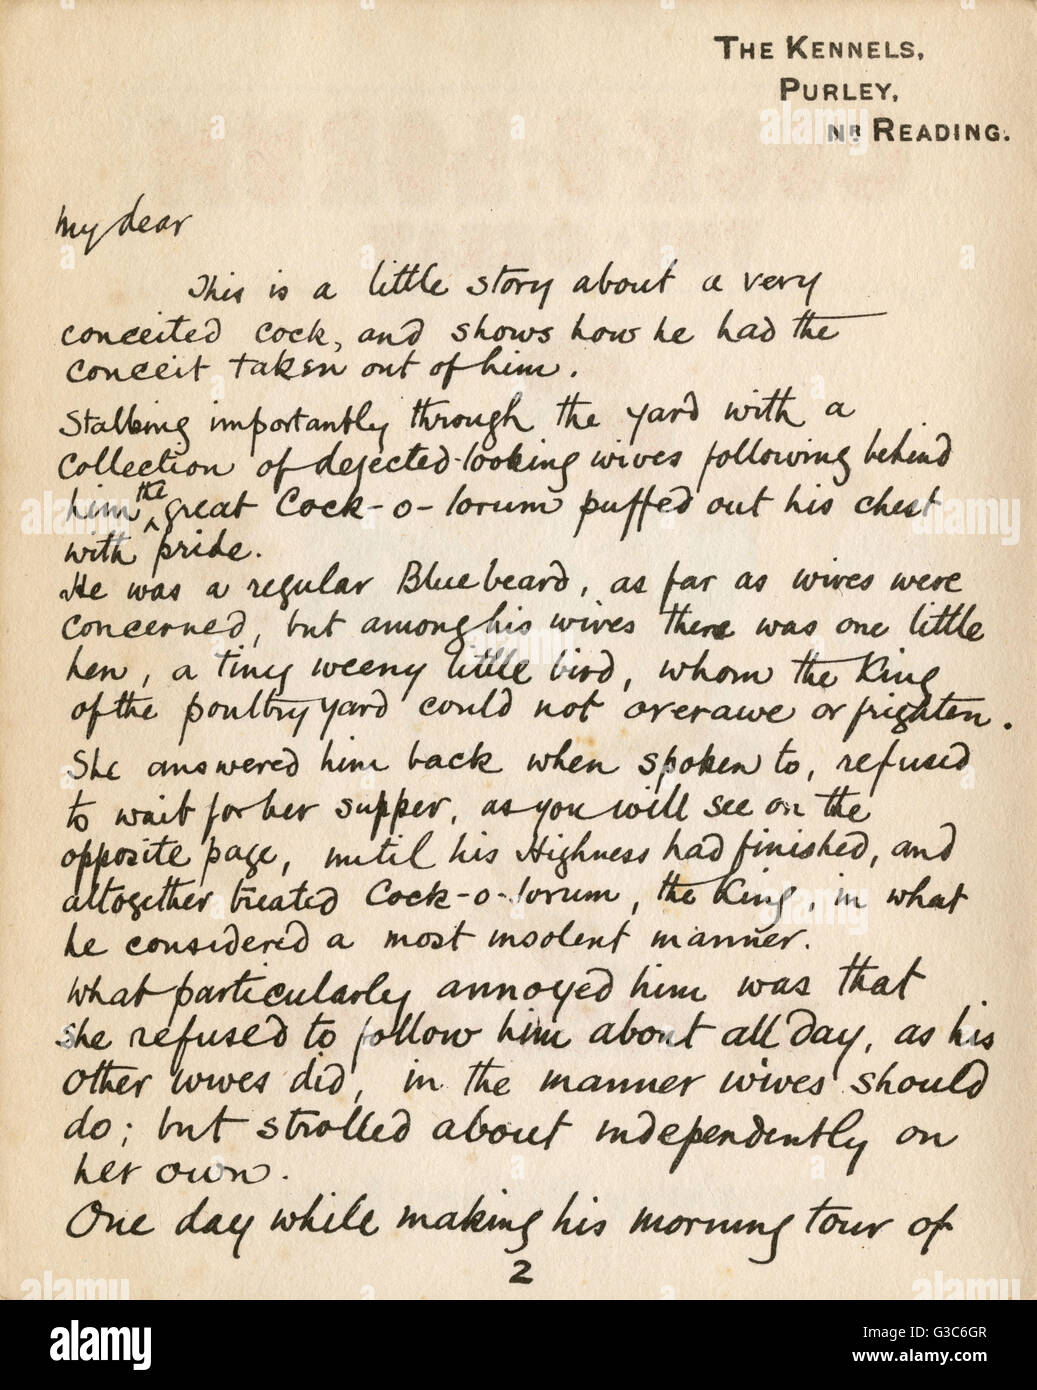 THE KENNELS,
PURLEY,
NR READING.
My dear
This is a little story about a very
conceited cock, and shows how he had the
conceit taken out of him.
Stalking importantly through the yard with a
collection of dejected-looking wives following behind
him the great Cock-o-lorum puffed out his chest
with pride.
He was a regular Bluebeard, as far as wives were
concerned, but among his wives there was one little
hen, a tiny weeny little bird, whom the King
of the poultry yard could not overawe or frighten.
She answered him back when spoken to, refused
to wait for her supper, as you will see on the
opposite page, until his Highness had finished, and
altogether treated Cock-o-lorum, the King, in what
he considered a most insolent manner.
What particularly annoyed him was that
she refused to follow him about all day, as his
other wives did, in the manner wives should
do; but strolled about independently on
her own.
One day while making his morning tour of
2
alamy
Image ID: G3C6GR
www.alamy.com